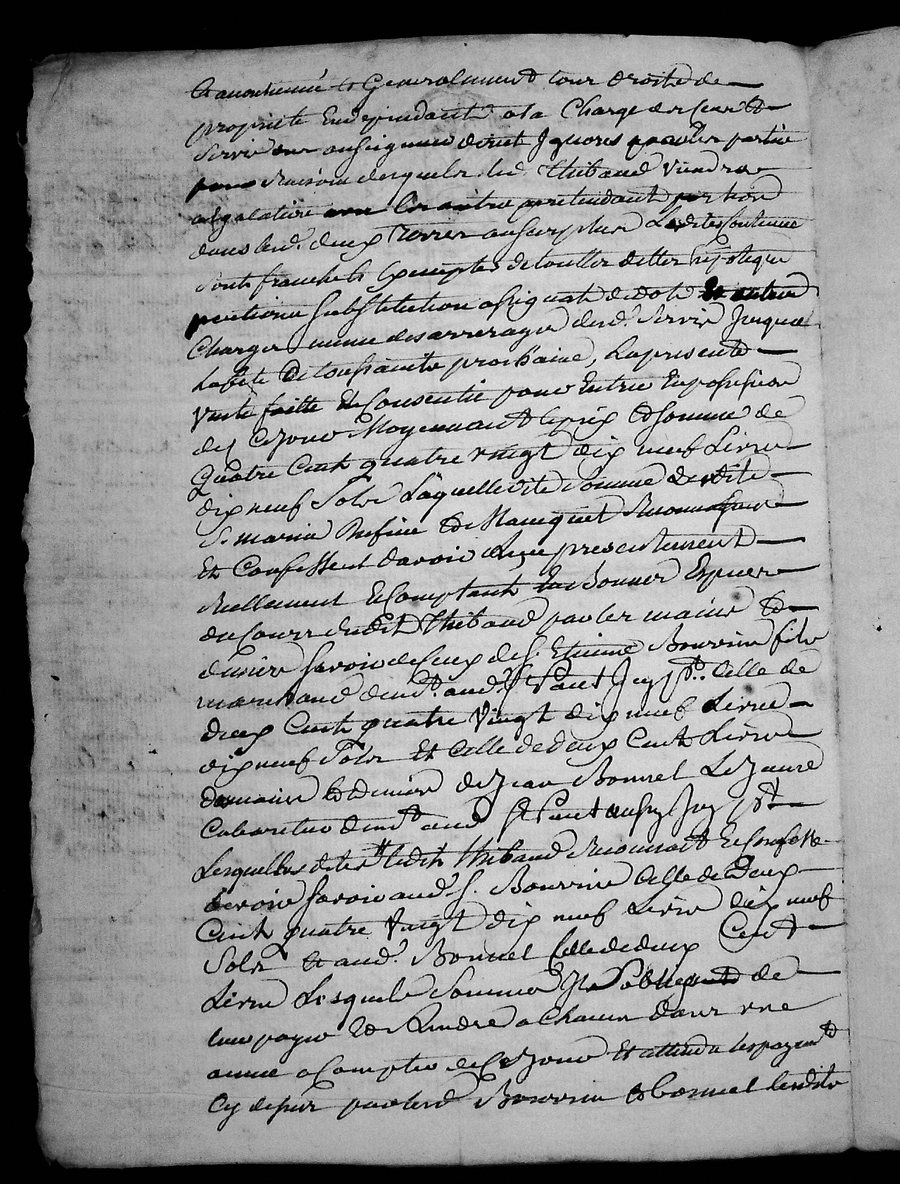 et Generalement tous droits de
propriete Independants a la Charge des Cens et
Servis au seigneur dont Ignores par les parties
Raison desquels led. Thibaud Viendra
a Egalation les autres pretendant portion
dans lesd. deux Terres au surplus Lesdites contenue
sont franches et Exemptes de touttes dettes hypoteque
pentions substitution assignats de dote et autres
Charges meme des arrerages dud. Servis Jusqua
La fete de toussaints prochaine, La presente
Vente faitte et Consentie pour Entrer En possession
des Ce jour Moyennant le prix et somme de
Quatre Cent quatre vingt dix neuf Livres
dix neuf Sols Laquelle dite somme Lesdits
Srs marin et Reconnoissent
Et Confessent d'avoir reçu presentement
Reellement et Comptant En Bonnes Especes
du Cours dudit Thibaud par les mains et
deniers savoir de Ceux de S. Etienne Bouvrin fils
marchand demt. aud. St Paul Icy pt. Celle de
deux Cent quatre Vingt dix neuf Livres
dix neuf Sols Et Celle de deux Cent Livres
des mains et deniers de Jean Bonnel Le Jeune
Cabaretier demt. aud. St Paul aussy Icy pt.
Lesquelles dites ledit Thibaud Reconnoit et Confesse
devoir savoir aud. S. Bouvrin Celle de deux
Cent quatre Vingt dix neuf Livres dix neuf
Sols Et aud. Bonnel Celle de deux Cent
Livres Lesquels sommes Il s'oblige de
leur payer Et Rendre a Chacun dans une
année a Compter de Ce jour Et attendu les payemts
Cy dessus par lesd. Bouvrin et bonnel lesdits